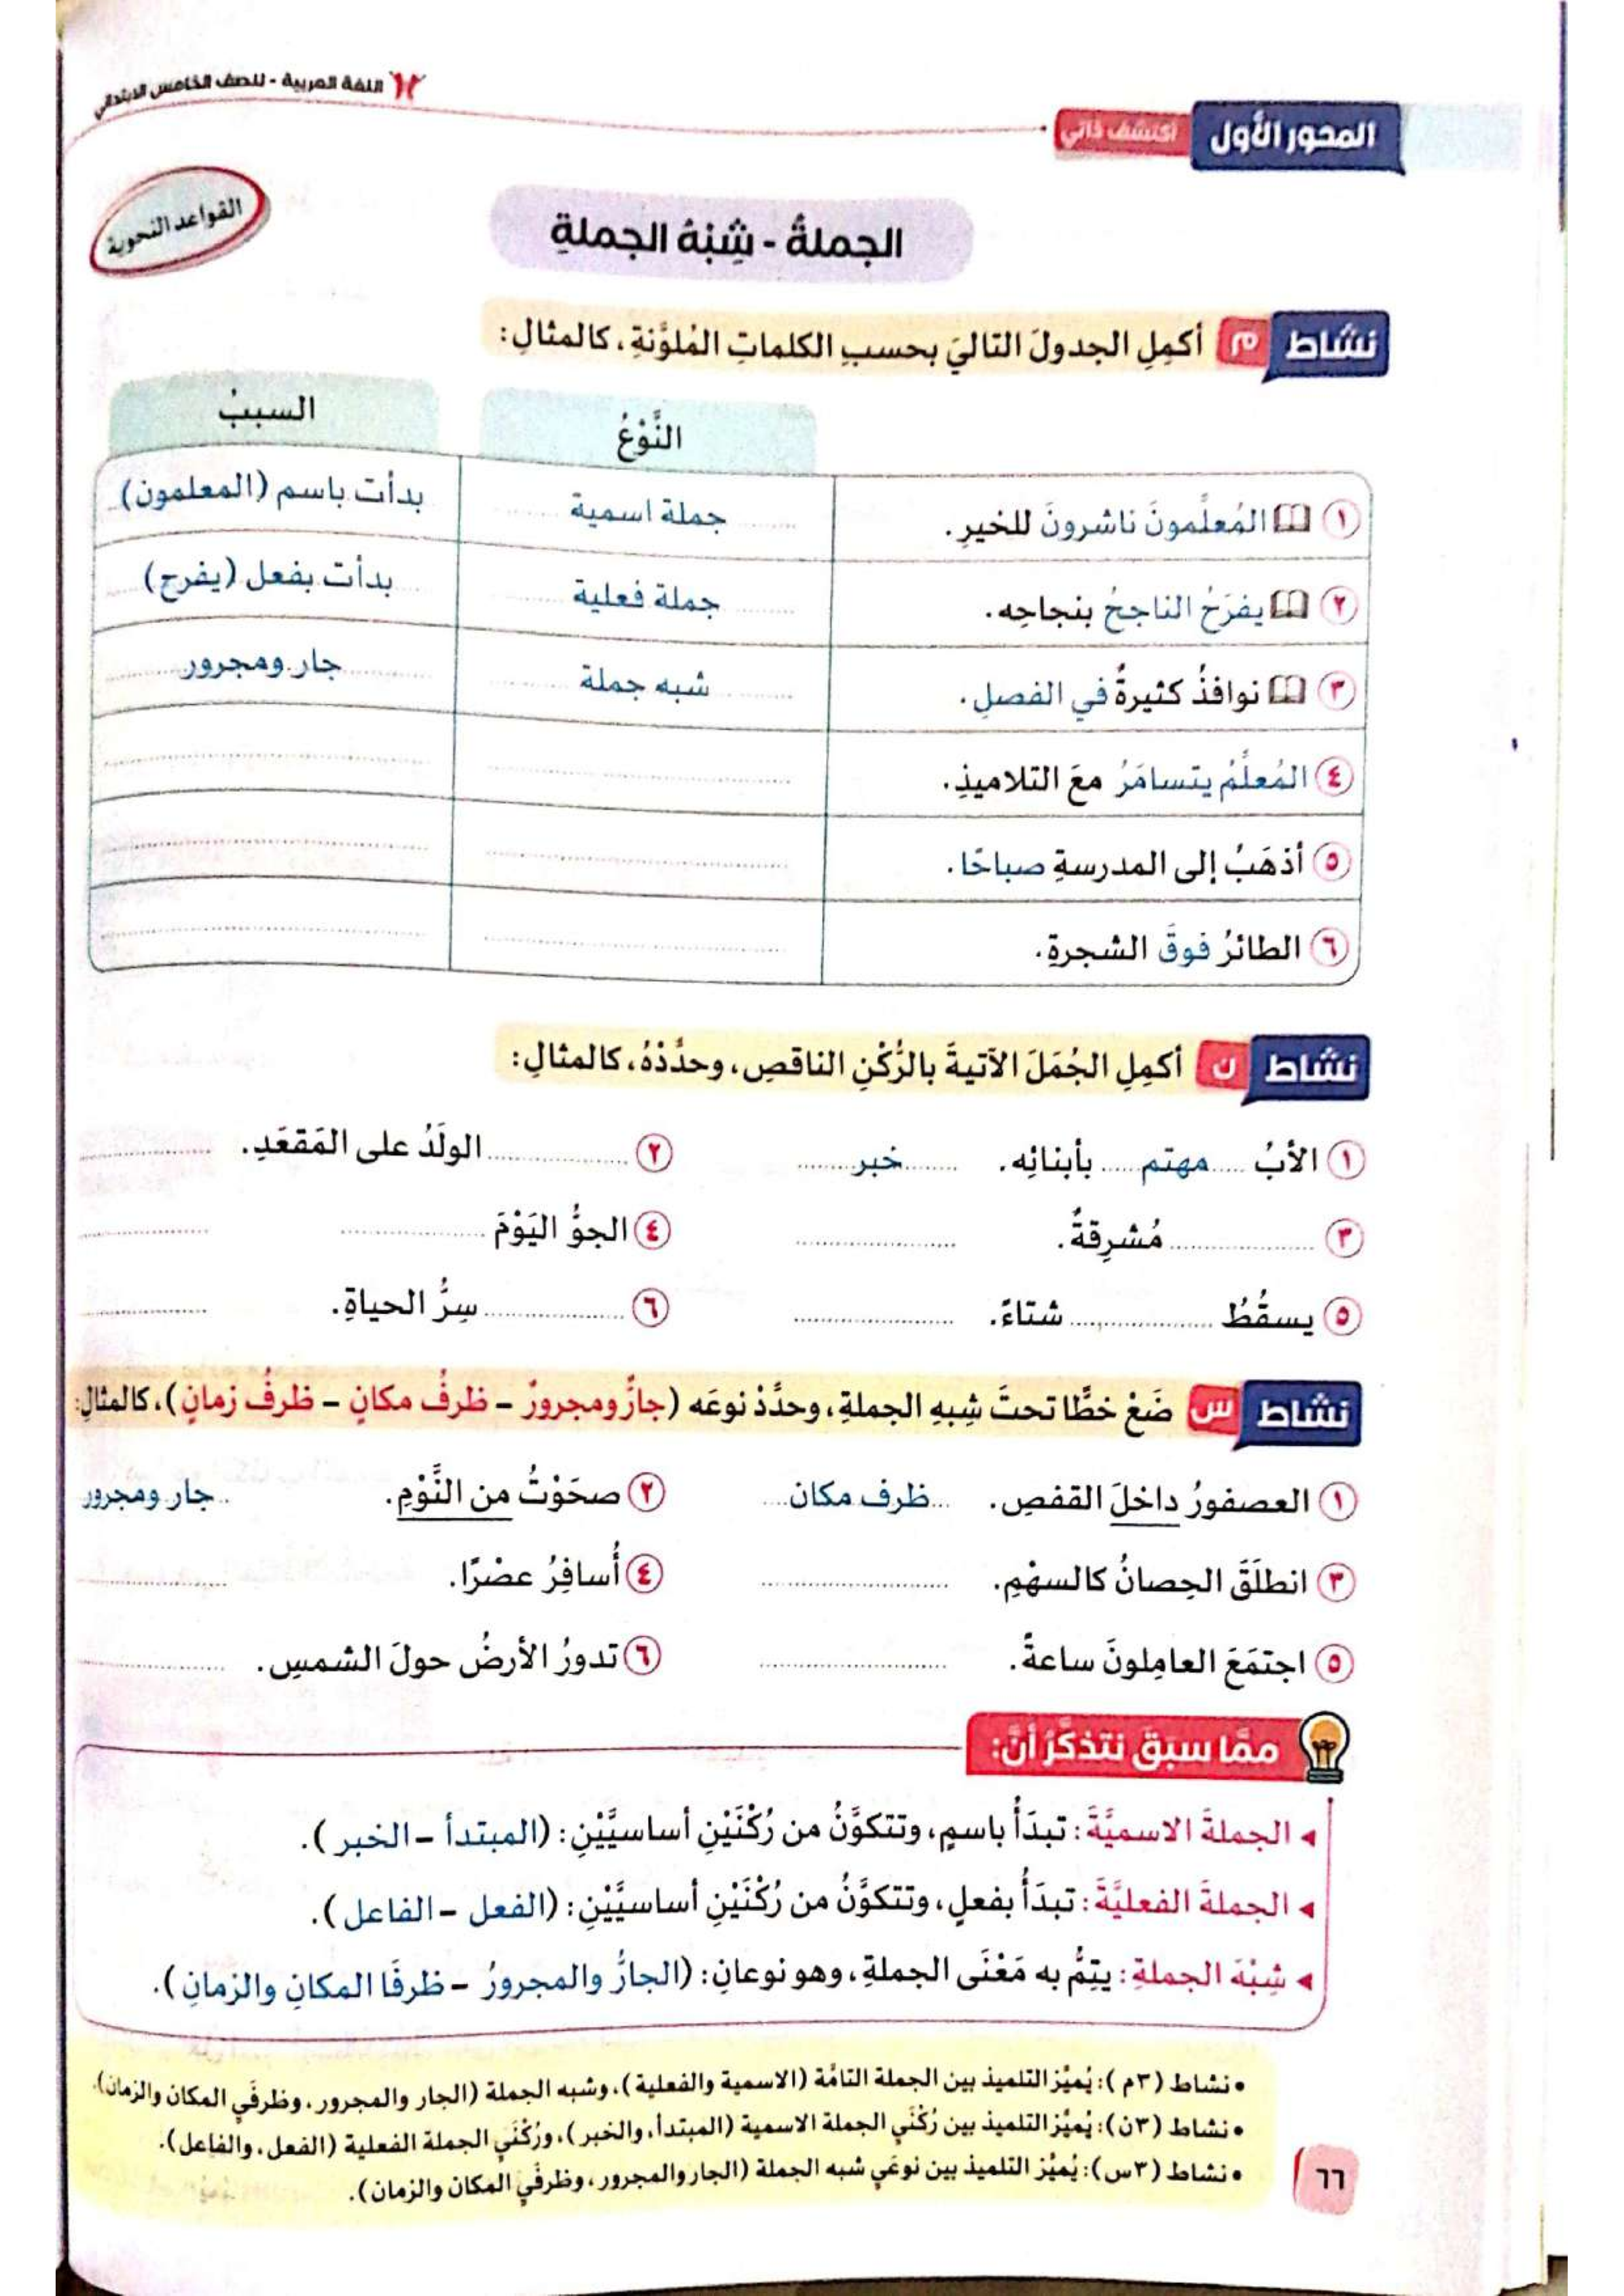 اللغة العربية - للصف الخامس الابتدائي
المحور الأول أكتشف ذاتي
القواعد النحوية
الجملةُ - شِبْهُ الجملةِ
نشاط م أكمِلِ الجدولَ التاليَ بحسبِ الكلماتِ المُلوَّنةِ، كالمثالِ:
النَّوْعُ السببُ
١ المُعلِّمونَ ناشرونَ للخيرِ. جملة اسمية بدأت باسم (المعلمون)
٢ يفرَحُ الناجحُ بنجاحِه. جملة فعلية بدأت بفعل (يفرح)
٣ نوافذُ كثيرةٌ في الفصلِ. شبه جملة جار ومجرور
٤ المُعلِّمُ يتسامَرُ معَ التلاميذِ.
٥ أذهَبُ إلى المدرسةِ صباحًا.
٦ الطائرُ فوقَ الشجرةِ.
نشاط ن أكمِلِ الجُمَلَ الآتيةَ بالرُّكْنِ الناقصِ، وحدِّدْهُ، كالمثالِ:
١ الأبُ مهتم بأبنائِه. خبر ٢ الولَدُ على المَقعَدِ.
٣ مُشرِقةٌ. ٤ الجوُّ اليَوْمَ
٥ يسقُطُ شتاءً. ٦ سِرُّ الحياةِ.
نشاط س ضَعْ خطًّا تحتَ شِبهِ الجملةِ، وحدِّدْ نوعَه (جارٌّ ومجرورٌ – ظرفُ مكانٍ – ظرفُ زمانٍ)، كالمثالِ:
١ العصفورُ داخلَ القفصِ. ظرف مكان ٢ صحَوْتُ من النَّوْمِ. جار ومجرور
٣ انطلَقَ الحِصانُ كالسهْمِ. ٤ أُسافِرُ عصْرًا.
٥ اجتمَعَ العامِلونَ ساعةً. ٦ تدورُ الأرضُ حولَ الشمسِ.
ممَّا سبقَ نتذكَّرُ أنَّ:
الجملةَ الاسميَّةَ: تبدَأُ باسمٍ، وتتكوَّنُ من رُكْنَيْنِ أساسيَّيْنِ: (المبتدأ – الخبر).
الجملةَ الفعليَّةَ: تبدَأُ بفعلٍ، وتتكوَّنُ من رُكْنَيْنِ أساسيَّيْنِ: (الفعل – الفاعل).
شِبْهَ الجملةِ: يتِمُّ به مَعْنَى الجملةِ، وهو نوعانِ: (الجارُّ والمجرورُ – ظرفَا المكانِ والزمانِ).
• نشاط (٣م): يُميِّز التلميذ بين الجملة التامَّة (الاسمية والفعلية)، وشبه الجملة (الجار والمجرور، وظرفَي المكان والزمان).
• نشاط (٣ن): يُميِّز التلميذ بين رُكْنَي الجملة الاسمية (المبتدأ، والخبر)، ورُكْنَي الجملة الفعلية (الفعل، والفاعل).
• نشاط (٣س): يُميِّز التلميذ بين نوعَي شبه الجملة (الجار والمجرور، وظرفَي المكان والزمان).
٦٦